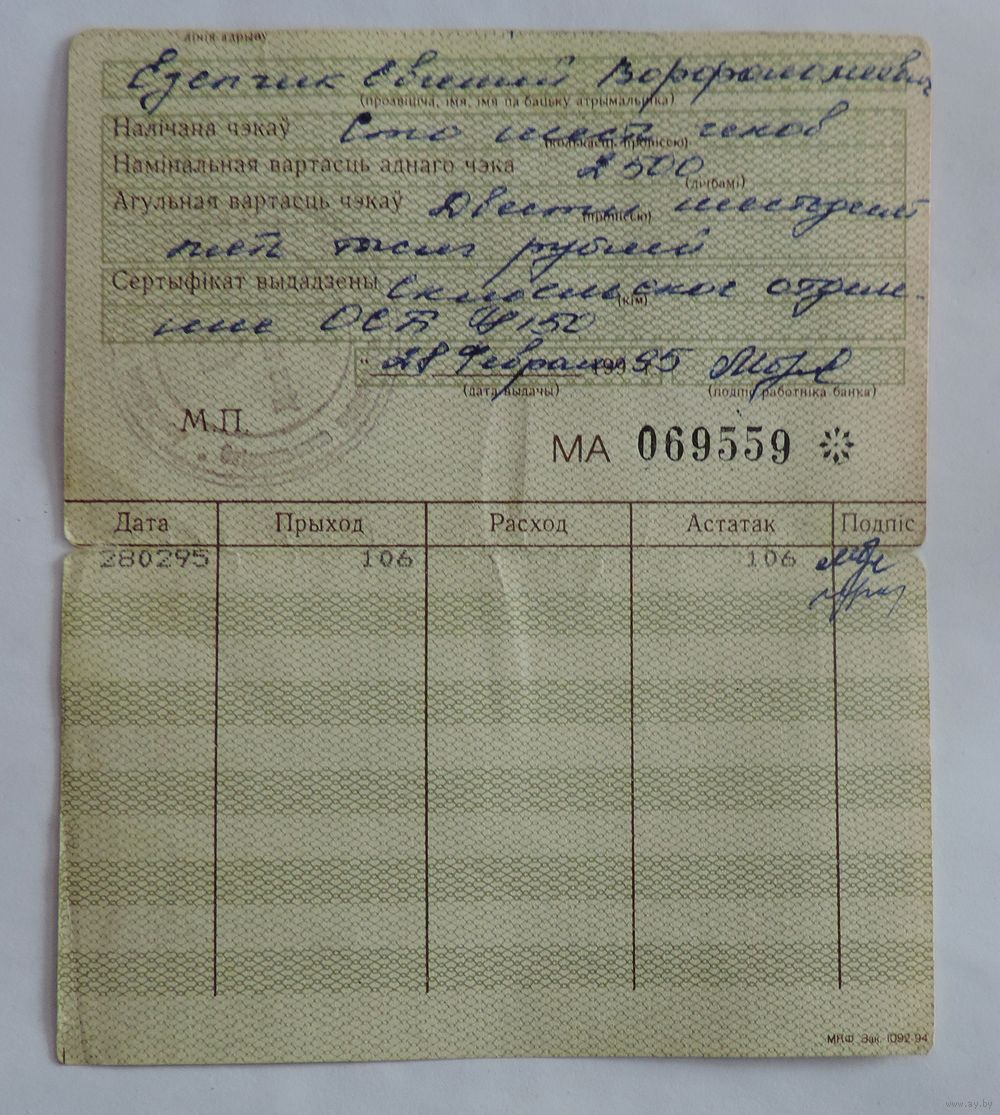 лінія адрыву
Езепчик Евгений Ворфоломеевич
(прозвішча, імя, імя па бацьку атрымальніка)
Налічана чэкаў Сто шест чеков
(колькасць прописсю)
Намінальная вартасць аднаго чэка 2500
(лічбамі)
Агульная вартасць чэкаў Двести шестдесят
(прописсю)
пять тысяч рублей
Сертыфікат выдадзены Скидельское отделе-
(кім)
ние ОСБ 6150
" 28 Февраля 1995
(дата выдачы) (подпіс работніка банка)
М.П.
МА 069559
Дата Прыход Расход Астатак Подпіс
280295 106 106
МПФ Зак. 1092-94
www.ay.by